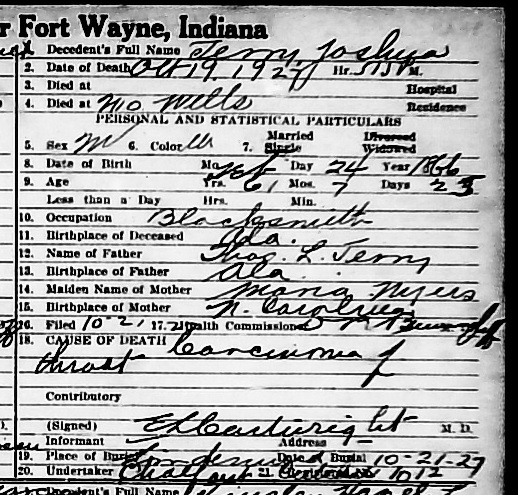 r Fort Wayne, Indiana
Decedent's Full Name Terry, Joshua
2. Date of Death Oct 19, 1927 Hr. M.
3. Died at Hospital
4. Died at Wells Residence
PERSONAL AND STATISTICAL PARTICULARS
5. Sex M 6. Color W 7. Married Single Divorced Widowed
8. Date of Birth Mo. Feb Day 24 Year 1866
9. Age Yrs. 61 Mos. 7 Days 25
Less than a Day Hrs. Min.
10. Occupation Blacksmith
11. Birthplace of Deceased
12. Name of Father L. Terry
13. Birthplace of Father Ala.
14. Maiden Name of Mother Myers
15. Birthplace of Mother N. Carolina
16. Filed 10-21 17. Health Commissioner
18. CAUSE OF DEATH Carcinoma of
throat
Contributory
(Signed) E H Cartwright M. D.
Informant Address
19. Place of Burial Date of Burial 10-21-27
20. Undertaker 21.
Decedent's Full Name